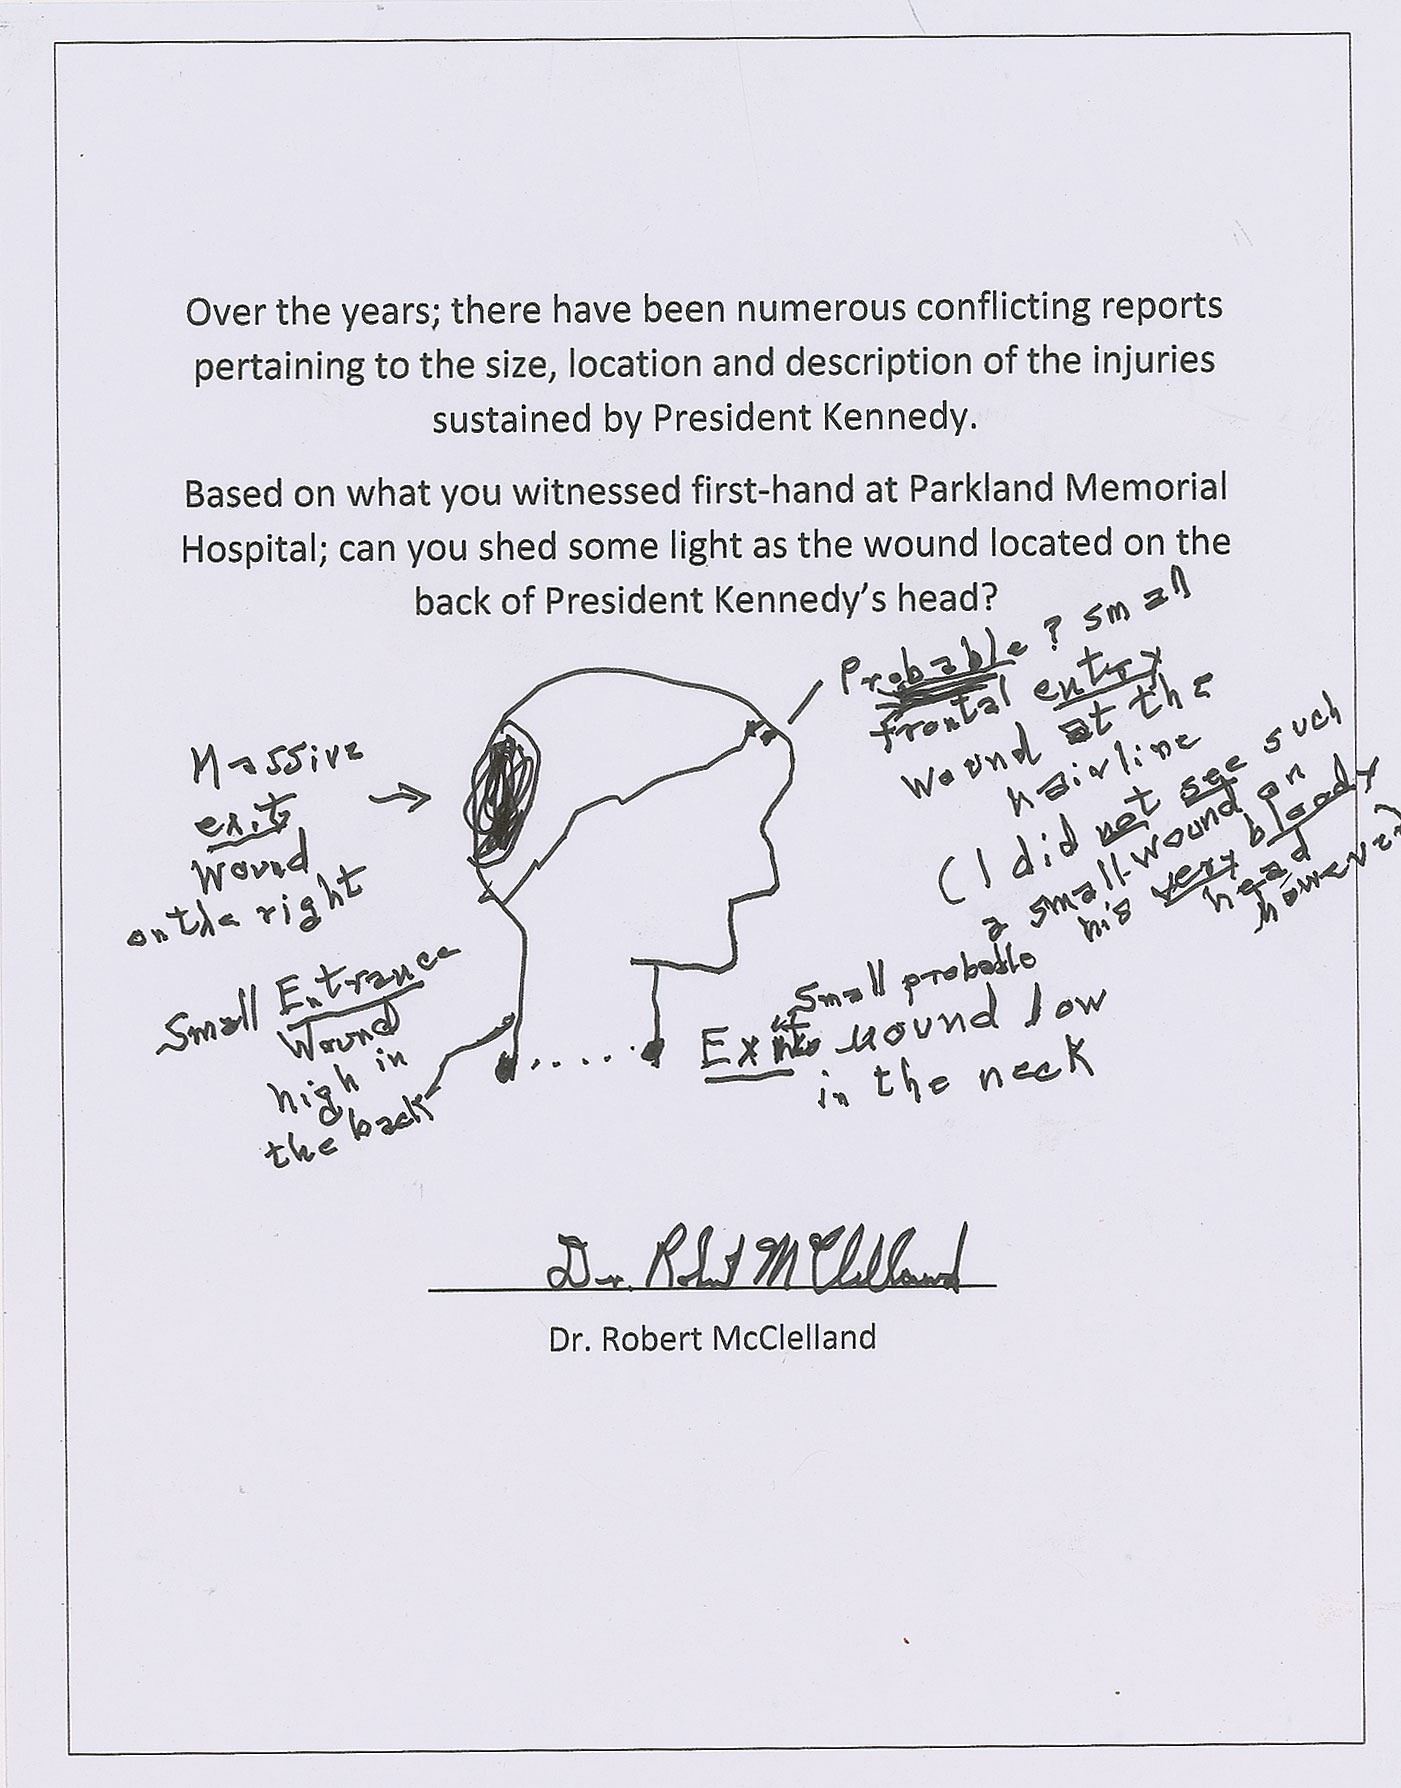 Over the years; there have been numerous conflicting reports
pertaining to the size, location and description of the injuries
sustained by President Kennedy.
Based on what you witnessed first-hand at Parkland Memorial
Hospital; can you shed some light as the wound located on the
back of President Kennedy's head?
Probable ? small
frontal entry
wound at the
hairline
(I did not see such
a small wound on
his very bloody
head
however)
Massive
exit
wound
on the right
Small Entrance
Wound
high in
the back
Small probable
Exit wound low
in the neck
Dr. Robert McClelland
Dr. Robert McClelland